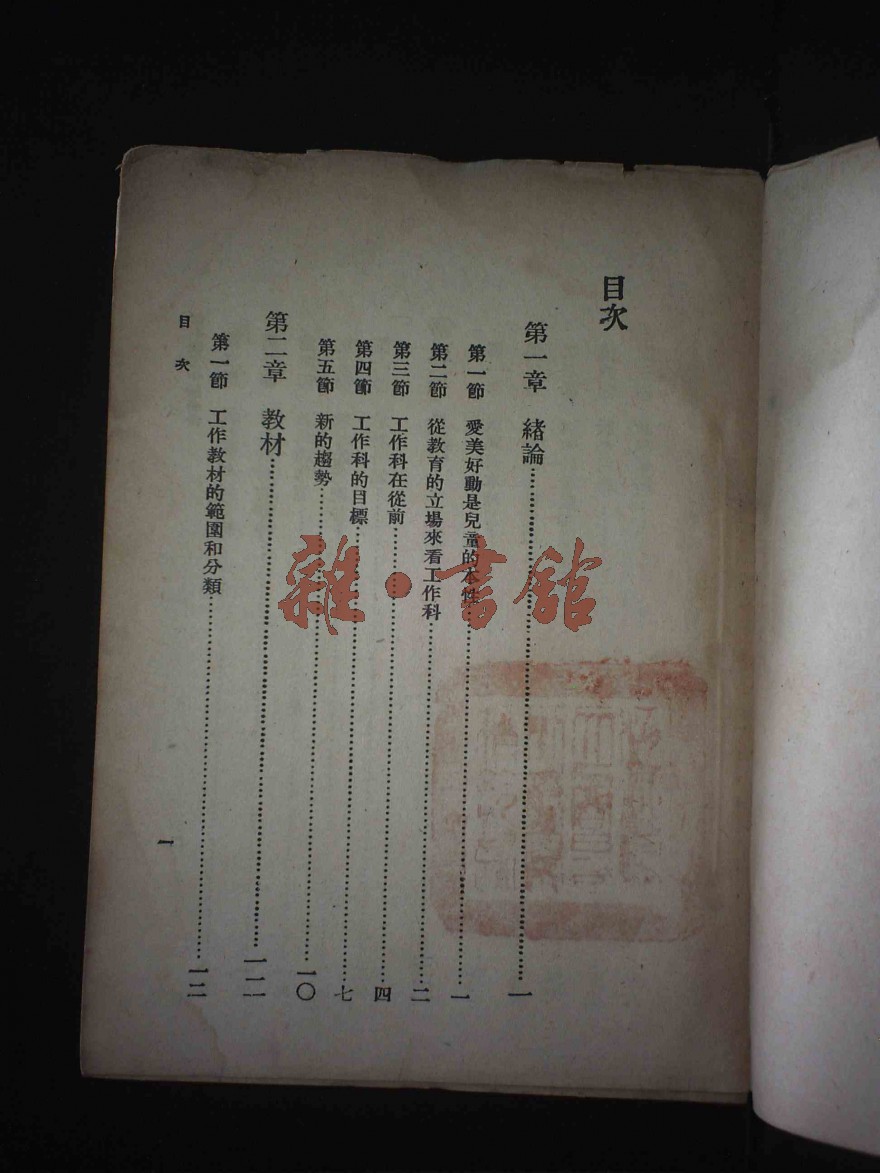 目次
第一章　緒論……一
第一節　愛美好動是兒童的本性……一
第二節　從教育的立場來看工作科……二
第三節　工作科在從前……四
第四節　工作科的目標……七
第五節　新的趨勢……一〇
第二章　教材……一二
第一節　工作教材的範圍和分類……一二
目次
一
雜·書館